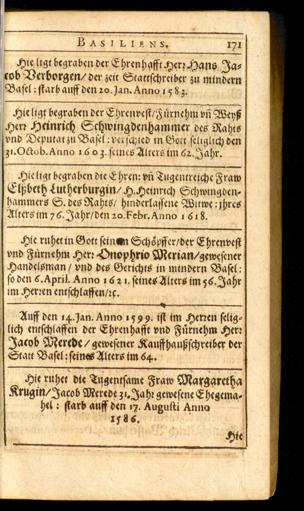 BASILIENS. 171
Hie ligt begraben der Ehrenhafft Herr Hans Ja-
cob Verborgen/der zeit Stattschreiber zu mindern
Basel: starb auff den 20. Jan. Anno 1583.
Hie ligt begraben der Ehrenvest/Fürnehm vñ Weyß
Herr Heinrich Schwingdenhammer des Rahts
vnd Deputat zu Basel: verschied in Gott seliglich den
31. Octob. Anno 1603. seines Alters im 62. Jahr.
Hie ligt begraben die Ehren: vñ Tugentreiche Fraw
Elsbeth Lutherburgin/ H. Heinrich Schwingden-
hammers S. des Rahts/ hinderlassene Witwe: jhres
Alters im 76. Jahr/den 20. Febr. Anno 1618.
Hie ruhet in Gott seinem Schöpffer/der Ehrenvest
vnd Fürnehm Herr Onophrio Merian/gewesener
Handelsman/ vnd des Gerichts in mindern Basel:
so den 6. April. Anno 1621. seines Alters im 56. Jahr
im Herren entschlaffen/ꝛc.
Auff den 14. Jan. Anno 1599. ist im Herren selig-
lich entschlaffen der Ehrenhafft vnd Fürnehm Herr
Jacob Merede/ gewesener Kauffhaußschreiber der
Statt Basel: seines Alters im 64.
Hie ruhet die Tugentsame Fraw Margaretha
Krugin/ Jacob Merede 31. Jahr gewesene Ehegema-
hel: starb auff den 17. Augusti Anno
1586.
Hie